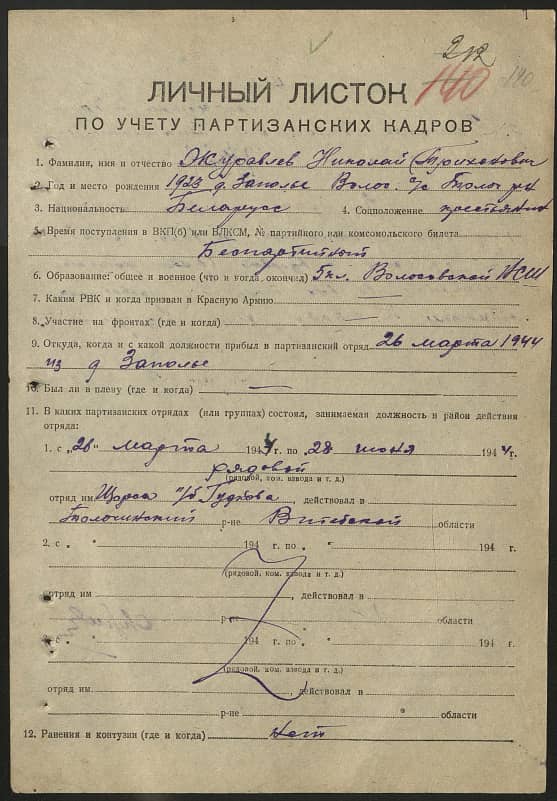 212
140 190
ЛИЧНЫЙ ЛИСТОК
ПО УЧЕТУ ПАРТИЗАНСКИХ КАДРОВ
1. Фамилия, имя и отчество Журавлев Николай
2. Год и место рождения 1923 д. Заполье Волос. с/с Толоч. р-н
3. Национальность Беларусс 4. Соцположение крестьянин
5. Время поступления в ВКП(б) или ВЛКСМ, № партийного или комсомольского билета
Беспартийный
6. Образование: общее и военное (что и когда окончил) 5 кл. Волосовской НСШ
7. Каким РВК и когда призван в Красную Армию —
8. Участие на фронтах (где и когда)
9. Откуда, когда и с какой должности прибыл в партизанский отряд 26 марта 1944
из д Заполье
10. Был ли в плену (где и когда) —
11. В каких партизанских отрядах (или группах) состоял, занимаемая должность и район действия
отряда:
1. с „26" марта 1944 г. по „28 июня 1944 г.
рядовой
(рядовой, ком. взвода и т. д.)
отряд им Щорса п/б Гудкова, действовал в
Толочинский р-не Витебской области
2. с „ " 194 г. по „ " 194 г.
(рядовой, ком. взвода и т. д.)
отряд им , действовал в
р-не области
с „ " 194 г. по „ " 194 г.
(рядовой, ком. взвода и т. д.)
отряд им , действовал в
р-не " области
12. Ранения и контузии (где и когда) нет